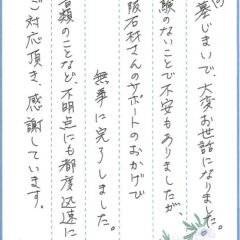 墓じまいで、大変お世話になりました。
験のないことで不安もありましたが、
阪石材さんのサポートのおかげで
無事に完了しました。
書類のことなど、不明点にも都度迅速に
ご対応頂き、感謝しています。